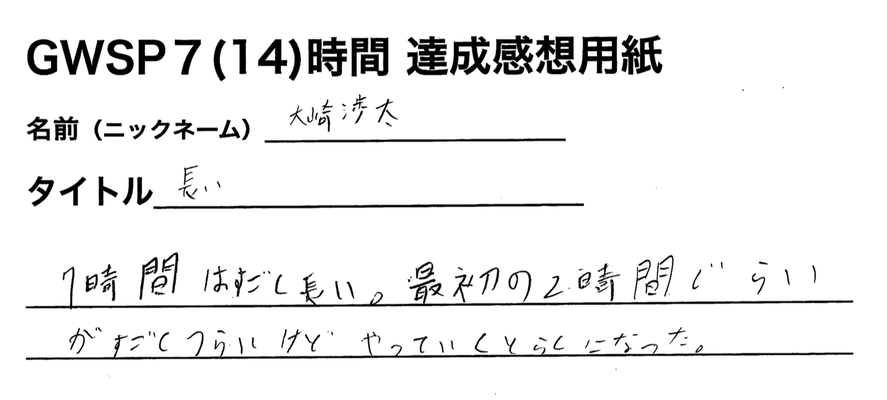 GWSP7(14)時間 達成感想用紙
名前（ニックネーム） 大崎渉太
タイトル 長い
7時間はすごく長い。最初の2時間ぐらい
がすごくつらいけどやっていくとらくになった。